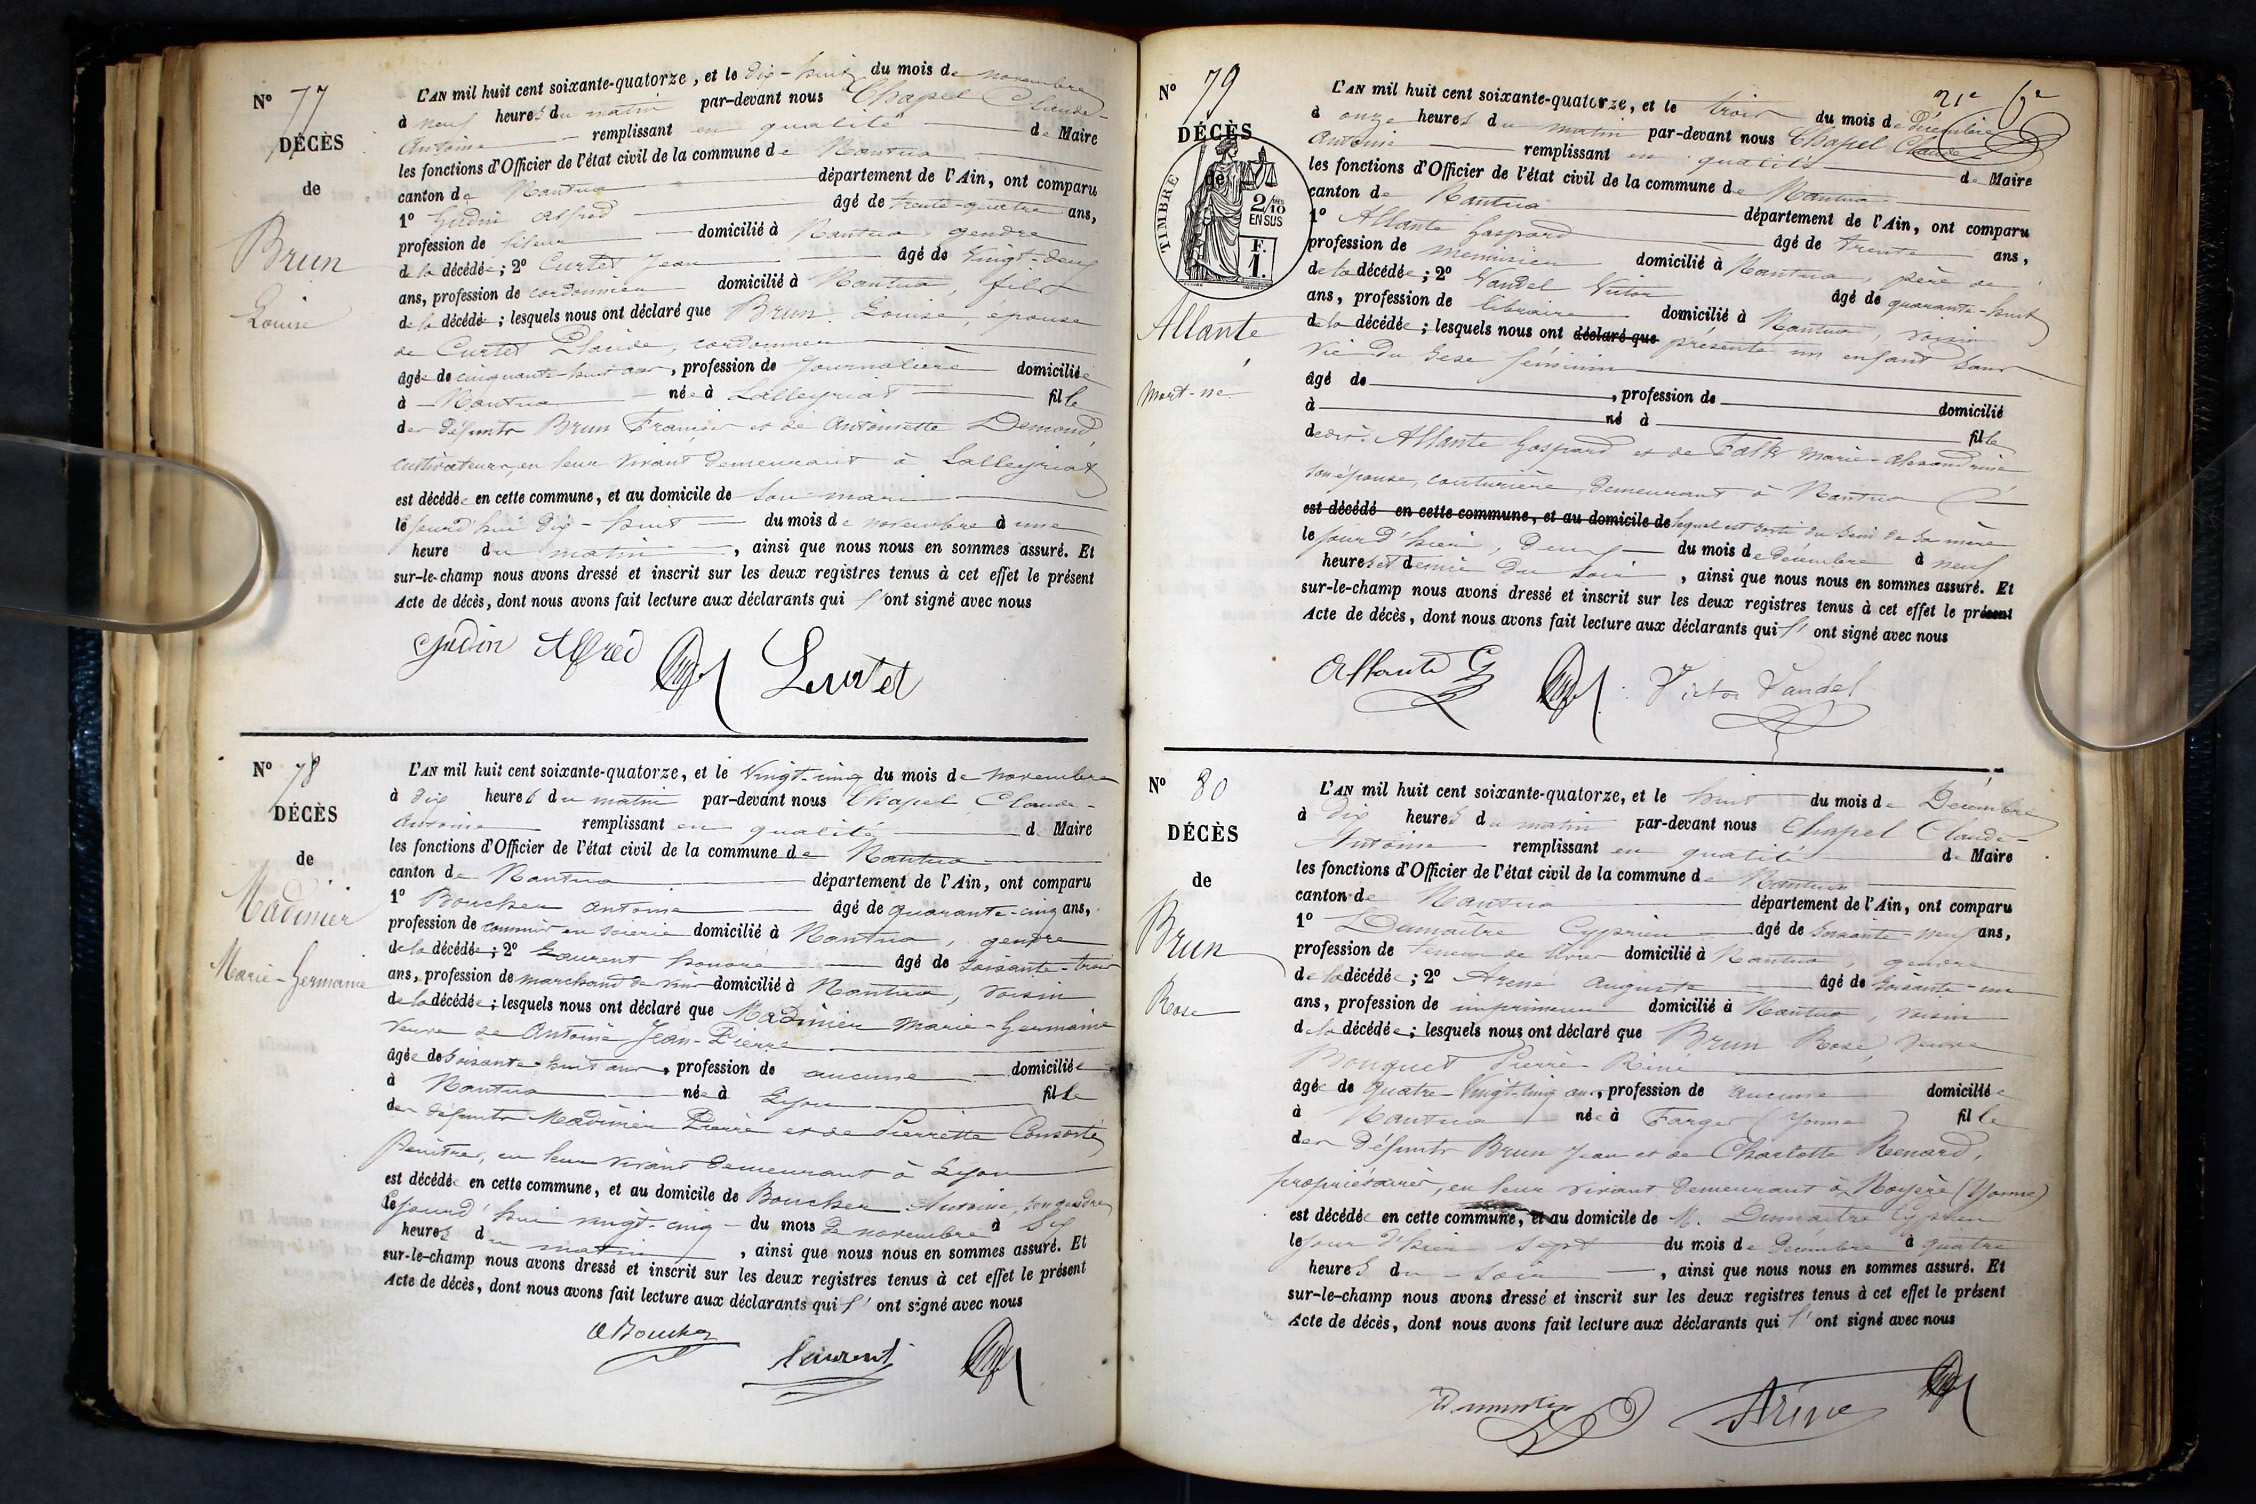 N° 77
DÉCÈS
de
Brun
Louise
L'AN mil huit cent soixante-quatorze, et le dix-huit du mois de novembre
à neuf heures du matin par-devant nous Chapel Claude-
Antoine remplissant en qualité de Maire
les fonctions d'Officier de l'état civil de la commune de Nantua
canton de Nantua département de l'Ain, ont comparu
1° Gudin Alfred âgé de trente-quatre ans,
profession de domicilié à Nantua, gendre
de la décédée; 2° Curtet Jean âgé de vingt-deux
ans, profession de cordonnier domicilié à Nantua, fils
de la décédée; lesquels nous ont déclaré que Brun Louise, épouse
de Curtet Claude, cordonnier
âgée de cinquante-huit ans, profession de journalière domiciliée
à Nantua née à Lalleyriat fille
des défunts Brun François et de Antoinette Demond,
cultivateurs, en leur vivant demeurant à Lalleyriat
est décédée en cette commune, et au domicile de son mari
le jourd'hui dix-huit du mois de novembre à une
heure du matin, ainsi que nous nous en sommes assuré. Et
sur-le-champ nous avons dressé et inscrit sur les deux registres tenus à cet effet le présent
Acte de décès, dont nous avons fait lecture aux déclarants qui l'ont signé avec nous
Gudin Alfred Curtet
N° 78
DÉCÈS
de
Madinier
Marie-Germaine
L'AN mil huit cent soixante-quatorze, et le vingt-cinq du mois de novembre
à dix heures du matin par-devant nous Chapel Claude-
Antoine remplissant en qualité de Maire
les fonctions d'Officier de l'état civil de la commune de Nantua
canton de Nantua département de l'Ain, ont comparu
1° Boucher Antoine âgé de quarante-cinq ans,
profession de commis en soierie domicilié à Nantua, gendre
de la décédée; 2° Laurent Honoré âgé de soixante-trois
ans, profession de marchand de vin domicilié à Nantua, voisin
de la décédée; lesquels nous ont déclaré que Madinier Marie-Germaine
veuve de Antoine Jean-Pierre
âgée de soixante-huit ans, profession de aucune domiciliée
à Nantua née à Lyon fille
des défunts Madinier Pierre et de Pierrette
en leur vivant demeurant à Lyon
est décédée en cette commune, et au domicile de Boucher Antoine, son gendre
le jourd'hui vingt-cinq du mois de novembre à six
heures du matin, ainsi que nous nous en sommes assuré. Et
sur-le-champ nous avons dressé et inscrit sur les deux registres tenus à cet effet le présent
Acte de décès, dont nous avons fait lecture aux déclarants qui l'ont signé avec nous
A Boucher Laurent
21e 6e
N° 79
DÉCÈS
de
TIMBRE
2/10
EN SUS
F.
1.
Allante
Mort-né
L'AN mil huit cent soixante-quatorze, et le trois du mois de décembre
à onze heures du matin par-devant nous Chapel Claude-
Antoine remplissant en qualité de Maire
les fonctions d'Officier de l'état civil de la commune de Nantua
canton de Nantua département de l'Ain, ont comparu
1° Allante Gaspard âgé de trente ans,
profession de menuisier domicilié à Nantua, père de
de la décédée; 2° Vandel Victor âgé de quarante-huit
ans, profession de libraire domicilié à Nantua, voisin
de la décédée; lesquels nous ont déclaré que présenté un enfant sans
vie du sexe féminin
âgé de, profession de domicilié
à né à fille
de Allante Gaspard et de Falk Marie-Alexandrine
son épouse, couturière, demeurant à Nantua
est décédé en cette commune, et au domicile de lequel est sorti du sein de sa mère
le jour d'hier, deux du mois de décembre à neuf
heures et demie du soir, ainsi que nous nous en sommes assuré. Et
sur-le-champ nous avons dressé et inscrit sur les deux registres tenus à cet effet le présent
Acte de décès, dont nous avons fait lecture aux déclarants qui l'ont signé avec nous
Allante G Victor Vandel
N° 80
DÉCÈS
de
Brun
Rose
L'AN mil huit cent soixante-quatorze, et le huit du mois de Décembre
à dix heures du matin par-devant nous Chapel Claude-
Antoine remplissant en qualité de Maire
les fonctions d'Officier de l'état civil de la commune de Nantua
canton de Nantua département de l'Ain, ont comparu
1° Dumaître Cyprien âgé de soixante-neuf ans,
profession de teneur de livres domicilié à Nantua, gendre
de la décédée; 2° Arène Auguste âgé de soixante-un
ans, profession de imprimeur domicilié à Nantua, voisin
de la décédée; lesquels nous ont déclaré que Brun Rose, veuve
Bouquet Pierre-Réné
âgée de quatre-vingt-cinq ans, profession de aucune domiciliée
à Nantua née à Farges (Yonne) fille
des défunts Brun Jean et de Charlotte Renard,
propriétaires, en leur vivant demeurant à Noyère (Yonne)
est décédée en cette commune, et au domicile de M. Dumaitre Cyprien
le jour d'hier sept du mois de Décembre à quatre
heures du soir, ainsi que nous nous en sommes assuré. Et
sur-le-champ nous avons dressé et inscrit sur les deux registres tenus à cet effet le présent
Acte de décès, dont nous avons fait lecture aux déclarants qui l'ont signé avec nous
Arène